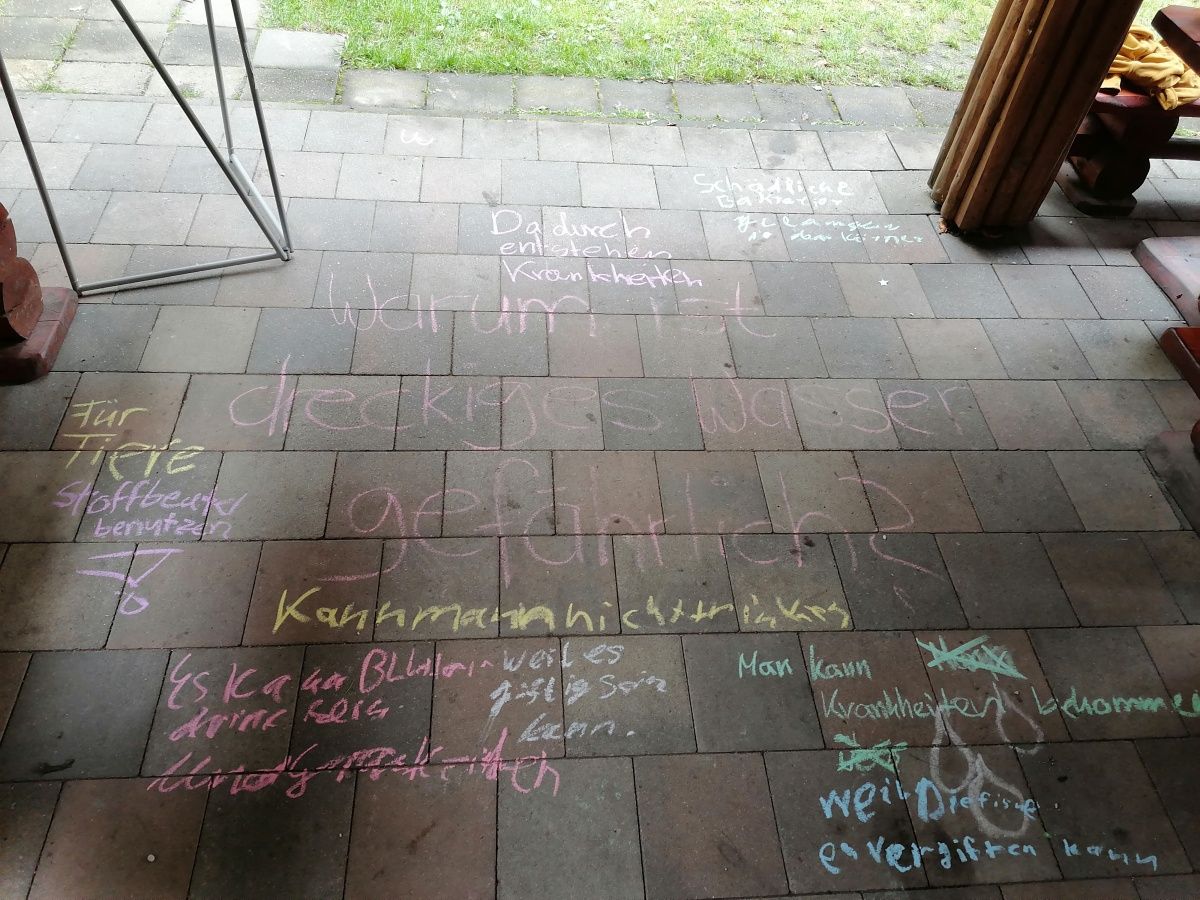 Schädliche
Bakterien
gelangen
in den Körper
Dadurch
entstehen
Krankheiten
Warum ist
dreckiges Wasser
gefährlich?
Für
Tiere
Stoffbeutel
benutzen
Kann man nicht trinken
Es Kann
drinc seis
weil es
giftig sein
kann.
Man kann
Krankheiten bekommen
weil Die fische
es vergiften kann